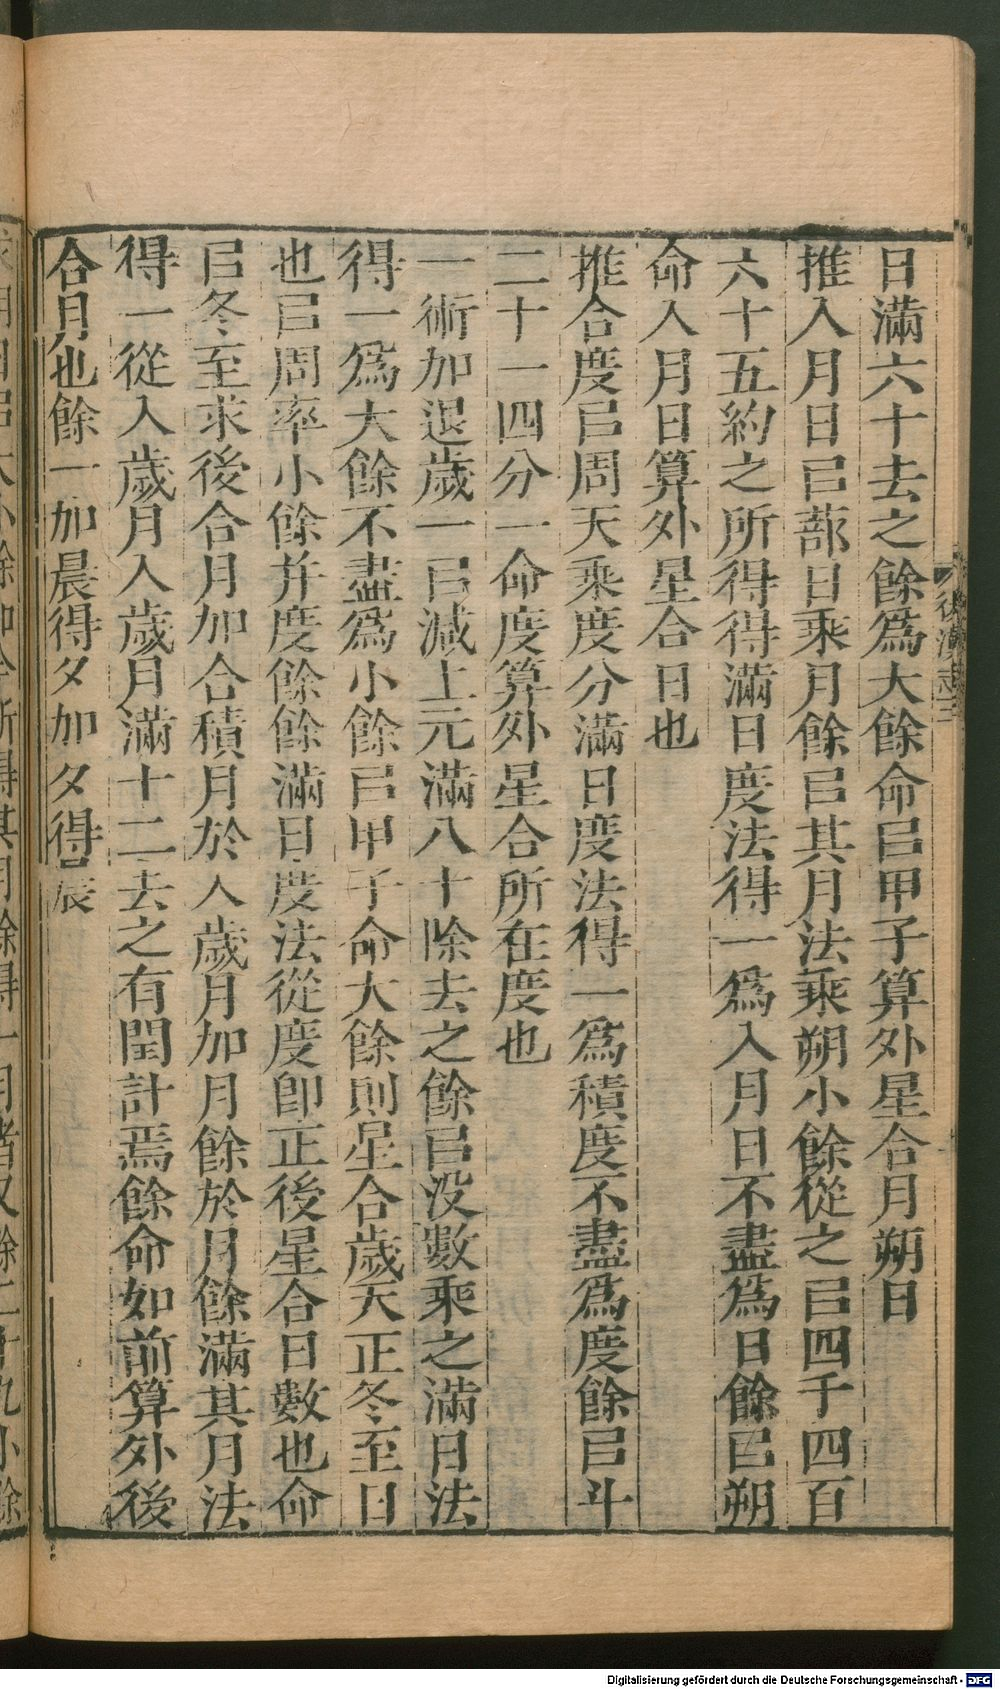 日滿六十去之餘爲大餘命㠯甲子算外星合月朔日
推入月日㠯蔀日乘月餘㠯其月法乘朔小餘從之㠯四千四百
六十五約之所得得滿日度法得一爲入月日不盡爲日餘㠯朔
命入月日算外星合日也
推合度㠯周天乘度分滿日度法得一爲積度不盡爲度餘㠯斗
二十一四分一命度算外星合所在度也
一術加退歲一㠯減上元滿八十除去之餘㠯沒數乘之滿日法
得一爲大餘不盡爲小餘㠯甲子命大餘則星合歲天正冬至日
也㠯周率小餘并度餘餘滿日度法從度卽正後星合日數也命
㠯冬至求後合月加合積月於入歲月加月餘於月餘滿其月法
得一從入歲月入歲月滿十二去之有閏計焉餘命如前算外後
合月也餘一加晨得夕加夕得晨
後漢志三
Digitalisierung gefördert durch die Deutsche Forschungsgemeinschaft - DFG